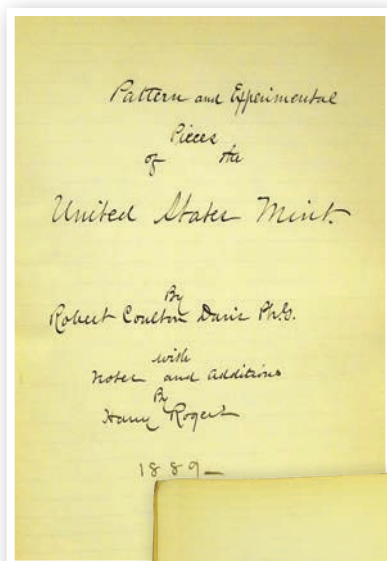 Pattern and Experimental
Pieces
of the
United States Mint.
By
Robert Coulton Davis Ph.G.
with
Notes and Additions
By
Harry Rogers
1889